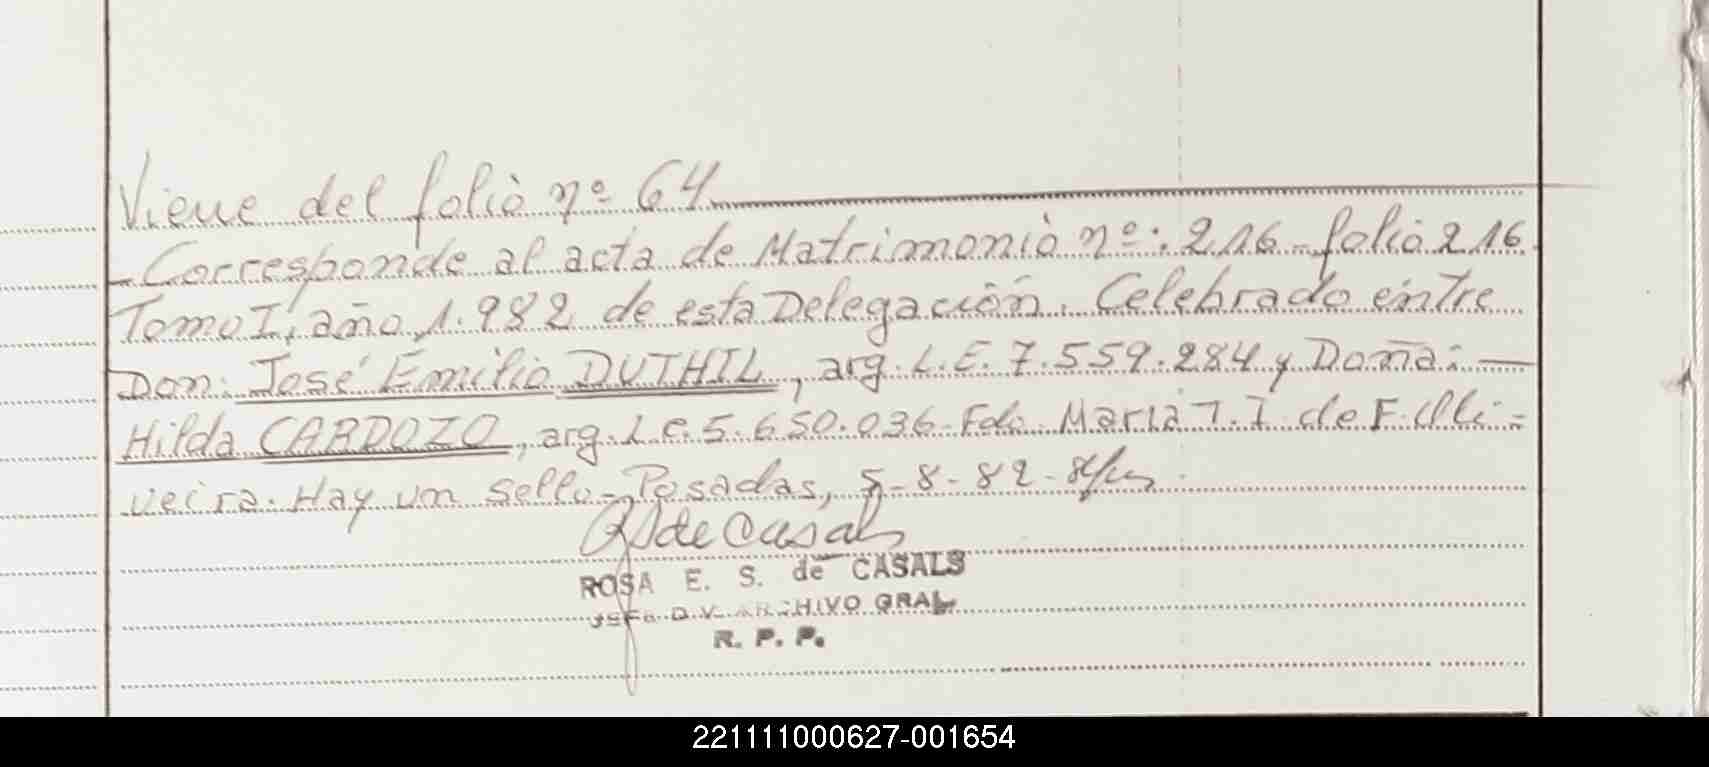 Viene del folio nº 64
- Corresponde al acta de Matrimonio nº: 216 - folio 216.
Tomo I, año 1.982 de esta Delegación. Celebrado entre
Don: José Emilio DUTHIL, arg. L.E. 7.559.284 y Doña: —
Hilda CARDOZO, arg. L.C. 5.650.036 - Fdo. María T. I. de F. Oli=
veira. Hay un sello - Posadas, 5-8-82 -
RS de Casals
ROSA E. S. de CASALS
JEFA DIV. ARCHIVO GRAL
R. P. P.
221111000627-001654